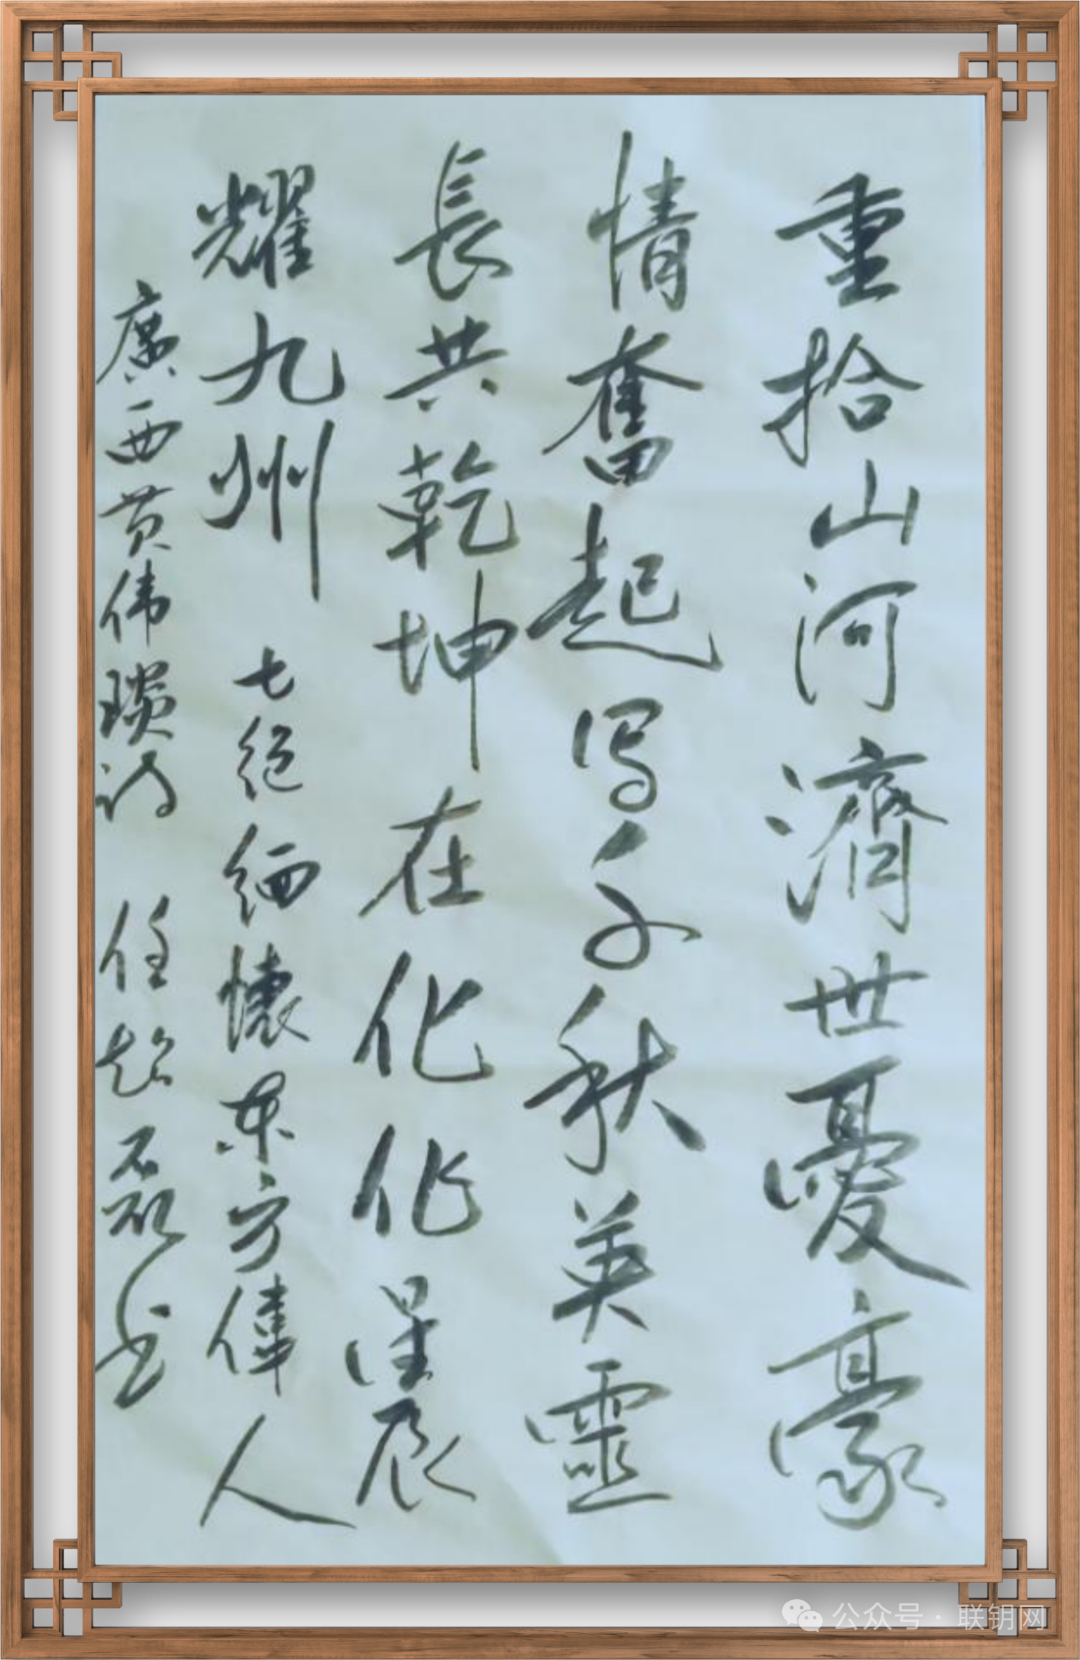 重拾山河濟世憂豪
情奮起写千秋英靈
長共乾坤在化化星辰
耀九州
七绝缅懷东方偉人
廣西黄伟瑛诗 任超磊书
公众号 · 联钥网